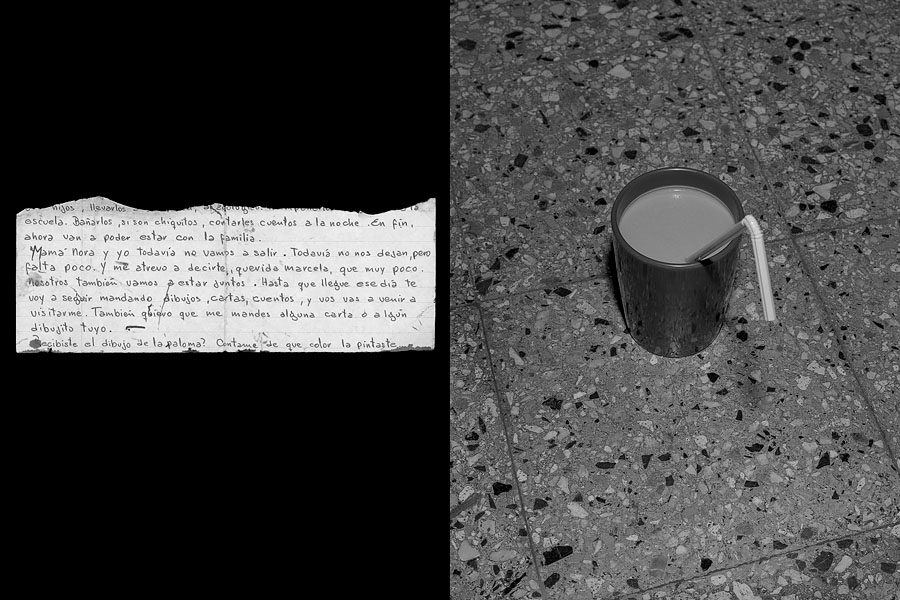 hijos, llevarlos
escuela. Bañarlos, si son chiquitos, contarles cuentos a la noche. En fin,
ahora van a poder estar con la familia.
Mamá Nora y yo todavía no vamos a salir. Todavía no nos dejan, pero
falta poco. Y me atrevo a decirte, querida marcela, que muy poco.
nosotros también vamos a estar juntos. Hasta que llegue ese día te
voy a seguir mandando dibujos, cartas, cuentos, y vos vas a venir a
visitarme. También quiero que me mandes alguna carta o algún
dibujito tuyo.
Recibiste el dibujo de la paloma? Contame de que color la pintaste